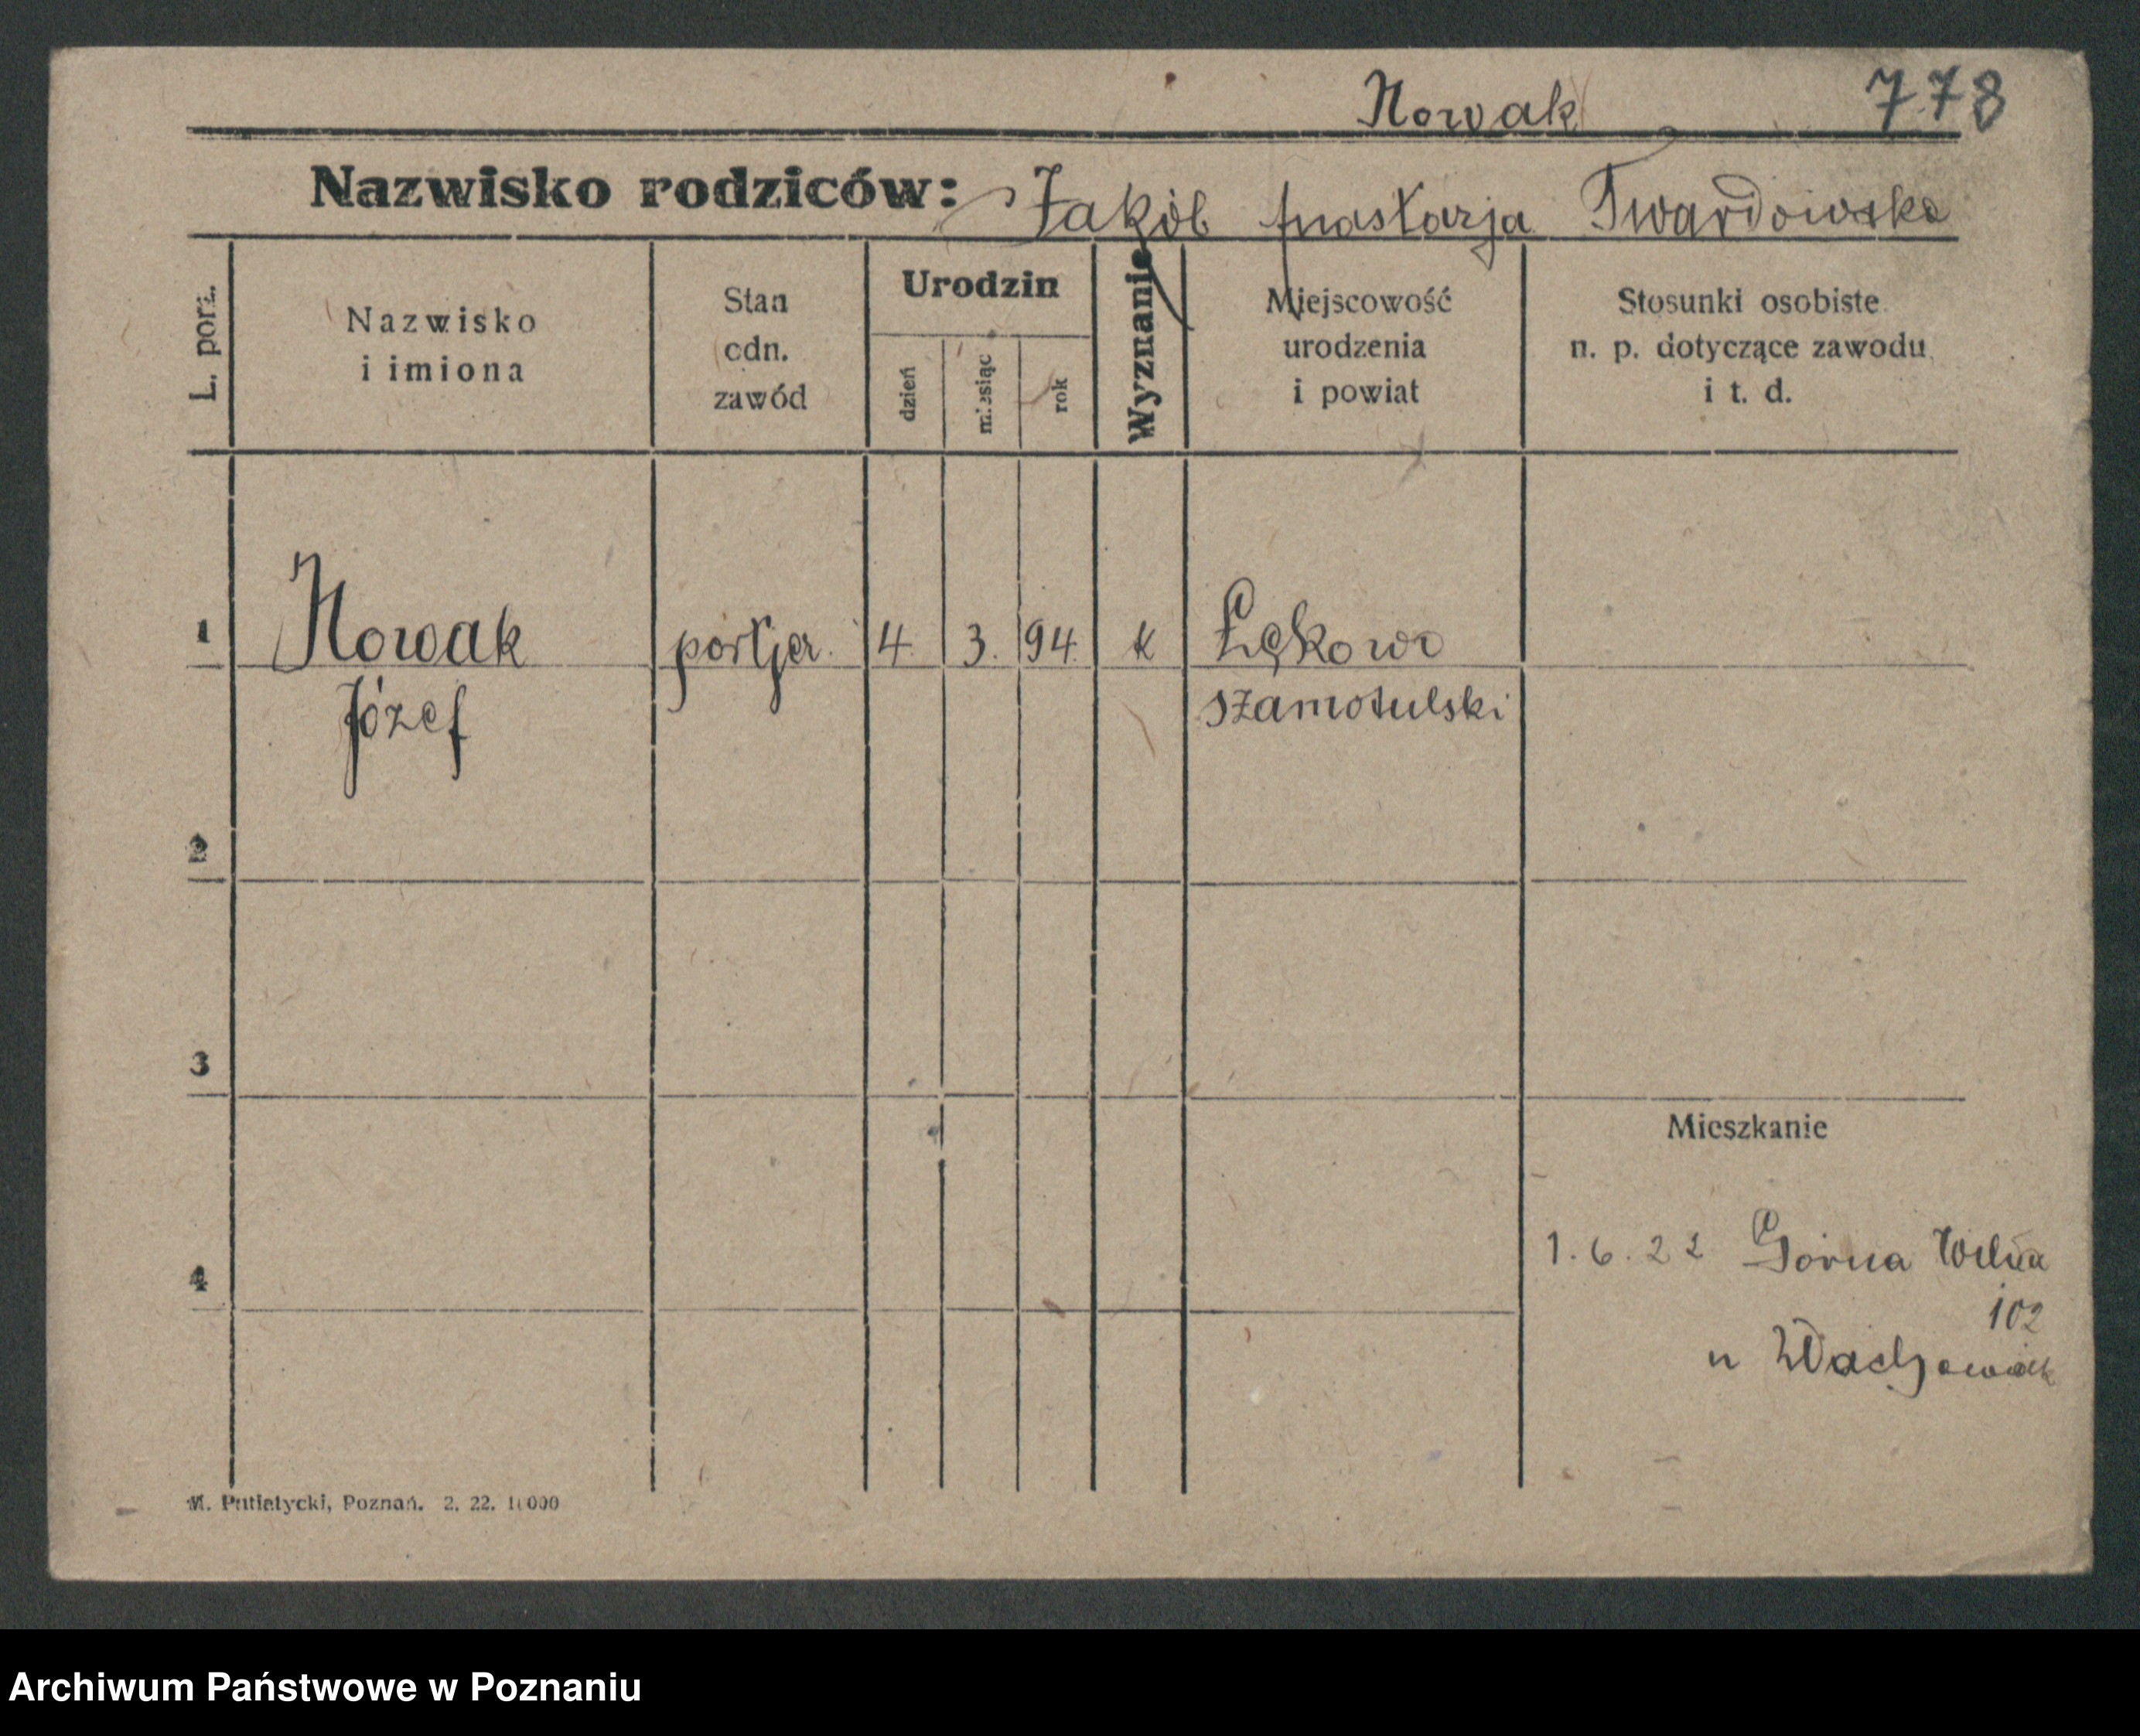 Nowak 778
Nazwisko rodziców: Jakób Twardowska
L. porz.
Nazwisko
i imiona
Stan
odn.
zawód
Urodzin
dzień
miesiąc
rok
Wyznanie
Miejscowość
urodzenia
i powiat
Stosunki osobiste
n. p. dotyczące zawodu
i t. d.
1 Nowak portjer. 4. 3. 94. k Łękowo
Józef szamotulski
2
3
Mieszkanie
1.6.22 Górna Wilda
4
102
u Wachowiak
M. Putiatycki, Poznań. 2. 22. 10000
Archiwum Państwowe w Poznaniu